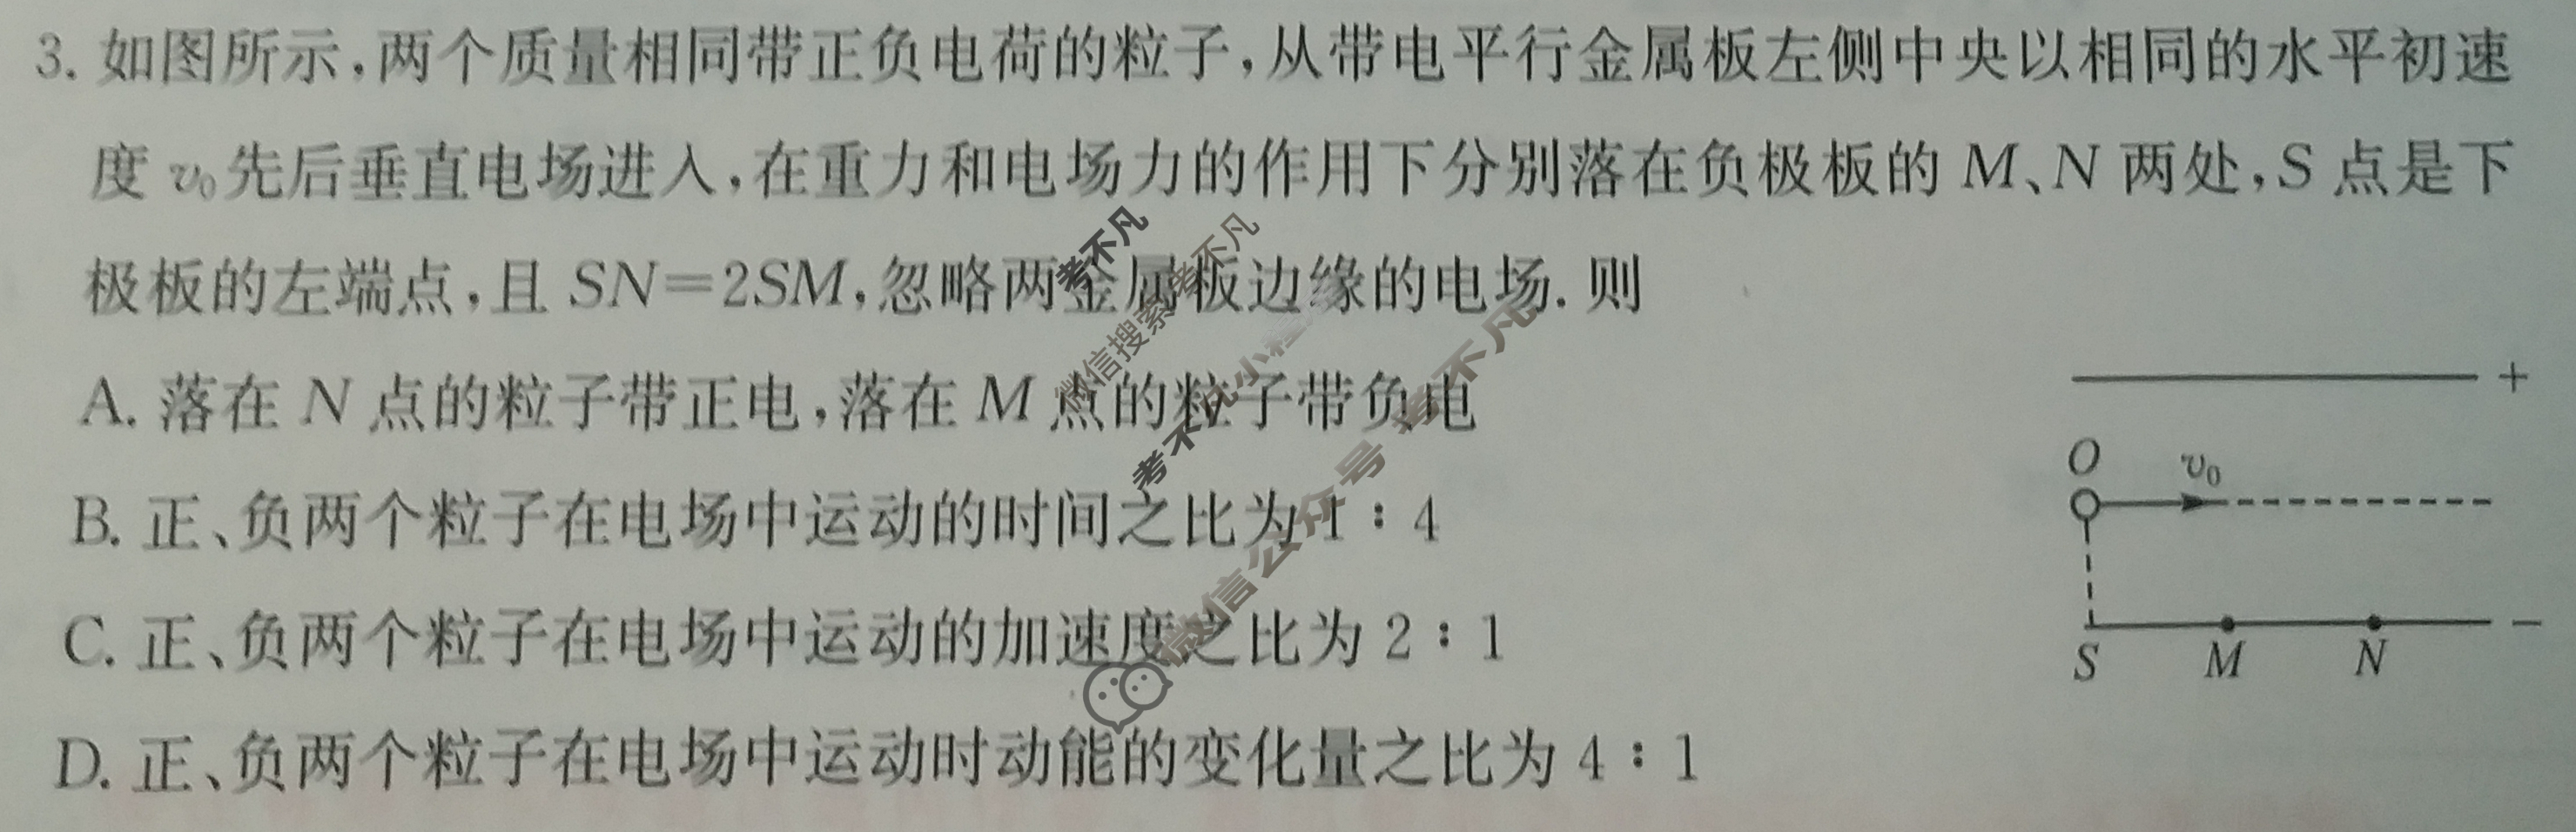 3. 如图所示,两个质量相同带正负电荷的粒子,从带电平行金属板左侧中央以相同的水平初速
度 v₀先后垂直电场进入,在重力和电场力的作用下分别落在负极板的 M、N 两处,S 点是下
极板的左端点,且 SN=2SM,忽略两金属板边缘的电场. 则
A. 落在 N 点的粒子带正电,落在 M 点的粒子带负电
B. 正、负两个粒子在电场中运动的时间之比为 1∶4
C. 正、负两个粒子在电场中运动的加速度之比为 2∶1
D. 正、负两个粒子在电场中运动时动能的变化量之比为 4∶1
+
O
v₀
S M N −
考不凡
微信搜索 考不凡
考不凡小程
微信公众号 考不凡